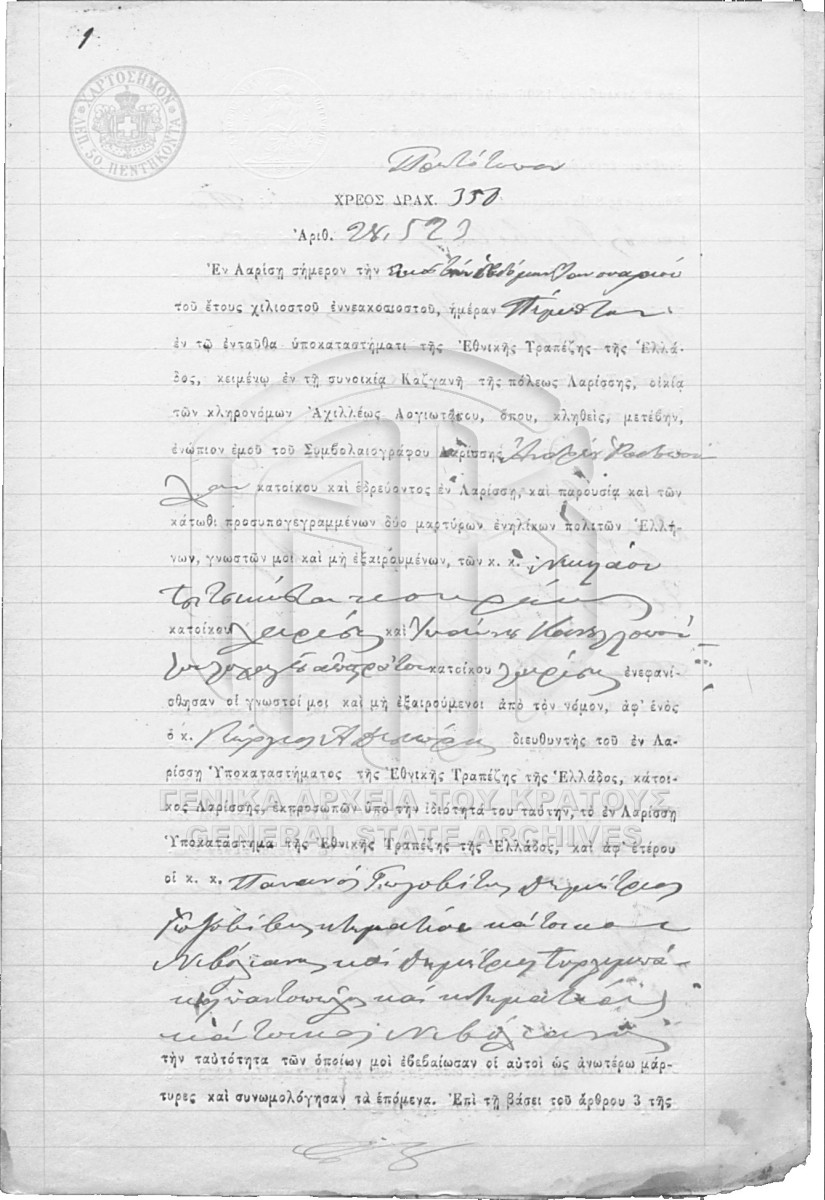 1
ΧΑΡΤΟΣΗΜΟΝ
ΛΕΠ. 50. ΠΕΝΤΗΚΟΝΤΑ
Πρωτότυπον
ΧΡΕΟΣ ΔΡΑΧ. 350
Ἀριθ. 28,523
Ἐν Λαρίσῃ σήμερον τὴν εἰκοστὴν ἑβδόμην Ἰανουαρίου
τοῦ ἔτους χιλιοστοῦ ἐννεακοσιοστοῦ, ἡμέραν Πέμπτην
ἐν τῷ ἐνταῦθα ὑποκαταστήματι τῆς Ἐθνικῆς Τραπέζης τῆς Ἑλλά-
δος, κειμένῳ ἐν τῇ συνοικίᾳ Καζγανῆ τῆς πόλεως Λαρίσσης, οἰκίᾳ
τῶν κληρονόμων Ἀχιλλέως Λογιωτάτου, ὅπου, κληθεὶς, μετέβην,
ἐνώπιον ἐμοῦ τοῦ Συμβολαιογράφου Λαρίσσης Ἀνδρέου
κατοίκου καὶ ἑδρεύοντος ἐν Λαρίσσῃ, καὶ παρουσίᾳ καὶ τῶν
κάτωθι προσυπογεγραμμένων δύο μαρτύρων ἐνηλίκων πολιτῶν Ἑλλή-
νων, γνωστῶν μοι καὶ μὴ ἐξαιρουμένων, τῶν κ. κ. Νικολάου
κατοίκου Λαρίσης καὶ Ἰωάννου Κανελλοπού-
κατοίκου Λαρίσης ἐνεφανί-
σθησαν οἱ γνωστοί μοι καὶ μὴ ἐξαιρούμενοι ἀπὸ τὸν νόμον, ἀφ' ἑνὸς
ὁ κ. Γεώργιος διευθυντὴς τοῦ ἐν Λα-
ρίσσῃ Ὑποκαταστήματος τῆς Ἐθνικῆς Τραπέζης τῆς Ἑλλάδος, κάτοι-
κος Λαρίσσης, ἐκπροσωπῶν ὑπὸ τὴν ἰδιότητά του ταύτην, τὸ ἐν Λαρίσσῃ
ΓΕΝΙΚΑ ΑΡΧΕΙΑ ΤΟΥ ΚΡΑΤΟΥΣ
GENERAL STATE ARCHIVES
Ὑποκατάστημα τῆς Ἐθνικῆς Τραπέζης τῆς Ἑλλάδος, καὶ ἀφ' ἑτέρου
οἱ κ. κ. Δημήτριος
κτηματίαι κάτοικοι
καὶ Δημήτριος
καὶ κτηματίας
κάτοικος
τὴν ταὐτότητα τῶν ὁποίων μοὶ ἐβεβαίωσαν οἱ αὐτοὶ ὡς ἀνωτέρω μάρ-
τυρες καὶ συνωμολόγησαν τὰ ἑπόμενα. Ἐπὶ τῇ βάσει τοῦ ἄρθρου 3 τῆς